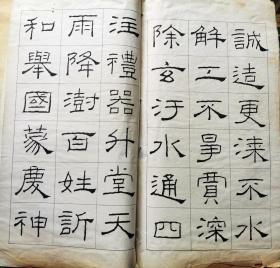 誠造更漆不水
解工不爭賈深
除玄汙水通四
注禮器升堂天
雨降澍百姓訢
和舉國蒙慶神